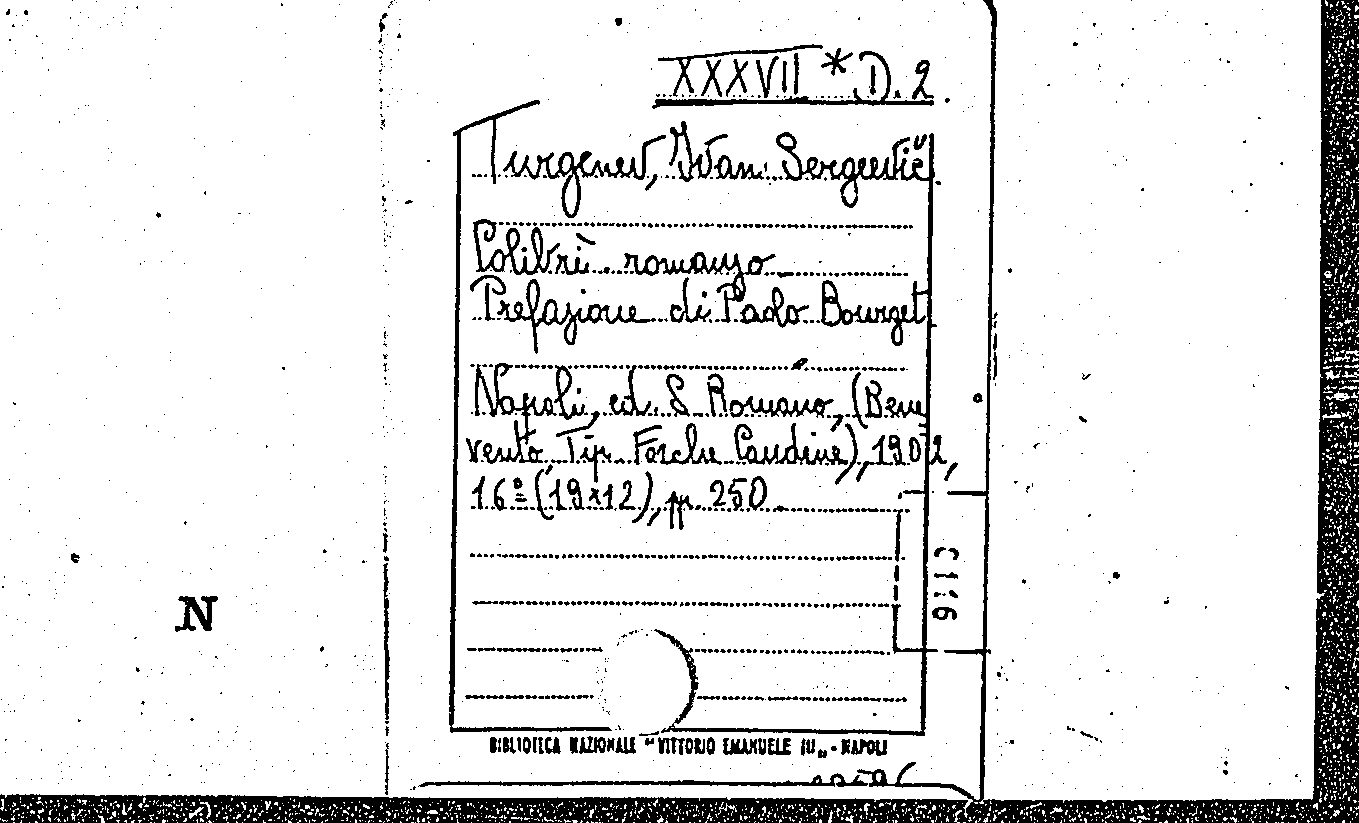 XXXVII * D. 2
Turgenev, Ivan Sergeevič
Colibrì. romanzo
Prefazione di Paolo Bourget
Napoli, ed. S. Romano, (Bene
vento, Tip. Forche Caudine), 1902,
16º (19x12), pp. 250
N
BIBLIOTECA NAZIONALE "VITTORIO EMANUELE III" - NAPOLI